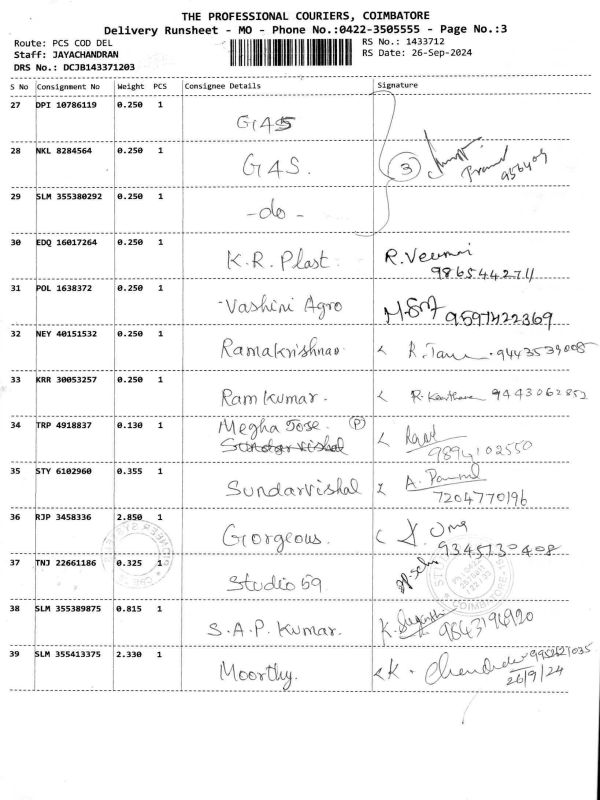 THE PROFESSIONAL COURIERS, COIMBATORE
Delivery Runsheet - MO - Phone No.:0422-3505555 - Page No.:3
Route: PCS COD DEL
RS No.: 1433712
Staff: JAYACHANDRAN
RS Date: 26-Sep-2024
DRS No.: DCJB143371203
S No Consignment No Weight PCS Consignee Details Signature
27 DPI 10786119 0.250 1 GAS
28 NKL 8284564 0.250 1 G4S. 3
29 SLM 355380292 0.250 1 -do-
30 EDQ 16017264 0.250 1 K.R. Plast. R. Veemai
9865444274
31 POL 1638372 0.250 1 Vashini Agro 9597422369
32 NEY 40151532 0.250 1 Ramakrishnan 9443539008
33 KRR 30053257 0.250 1 Ram Kumar. 9443062852
34 TRP 4918837 0.130 1 Megha Jose. P
Sundarvishal
9894102550
35 STY 6102960 0.355 1 Sundarvishal
7204770196
36 RJP 3458336 2.850 1 Gorgeous.
9345730408
37 TNJ 22661186 0.325 1 Studio 59
38 SLM 355389875 0.815 1 S.A.P. Kumar. 9843194920
39 SLM 355413375 2.330 1 Moorthy.
26/9/24